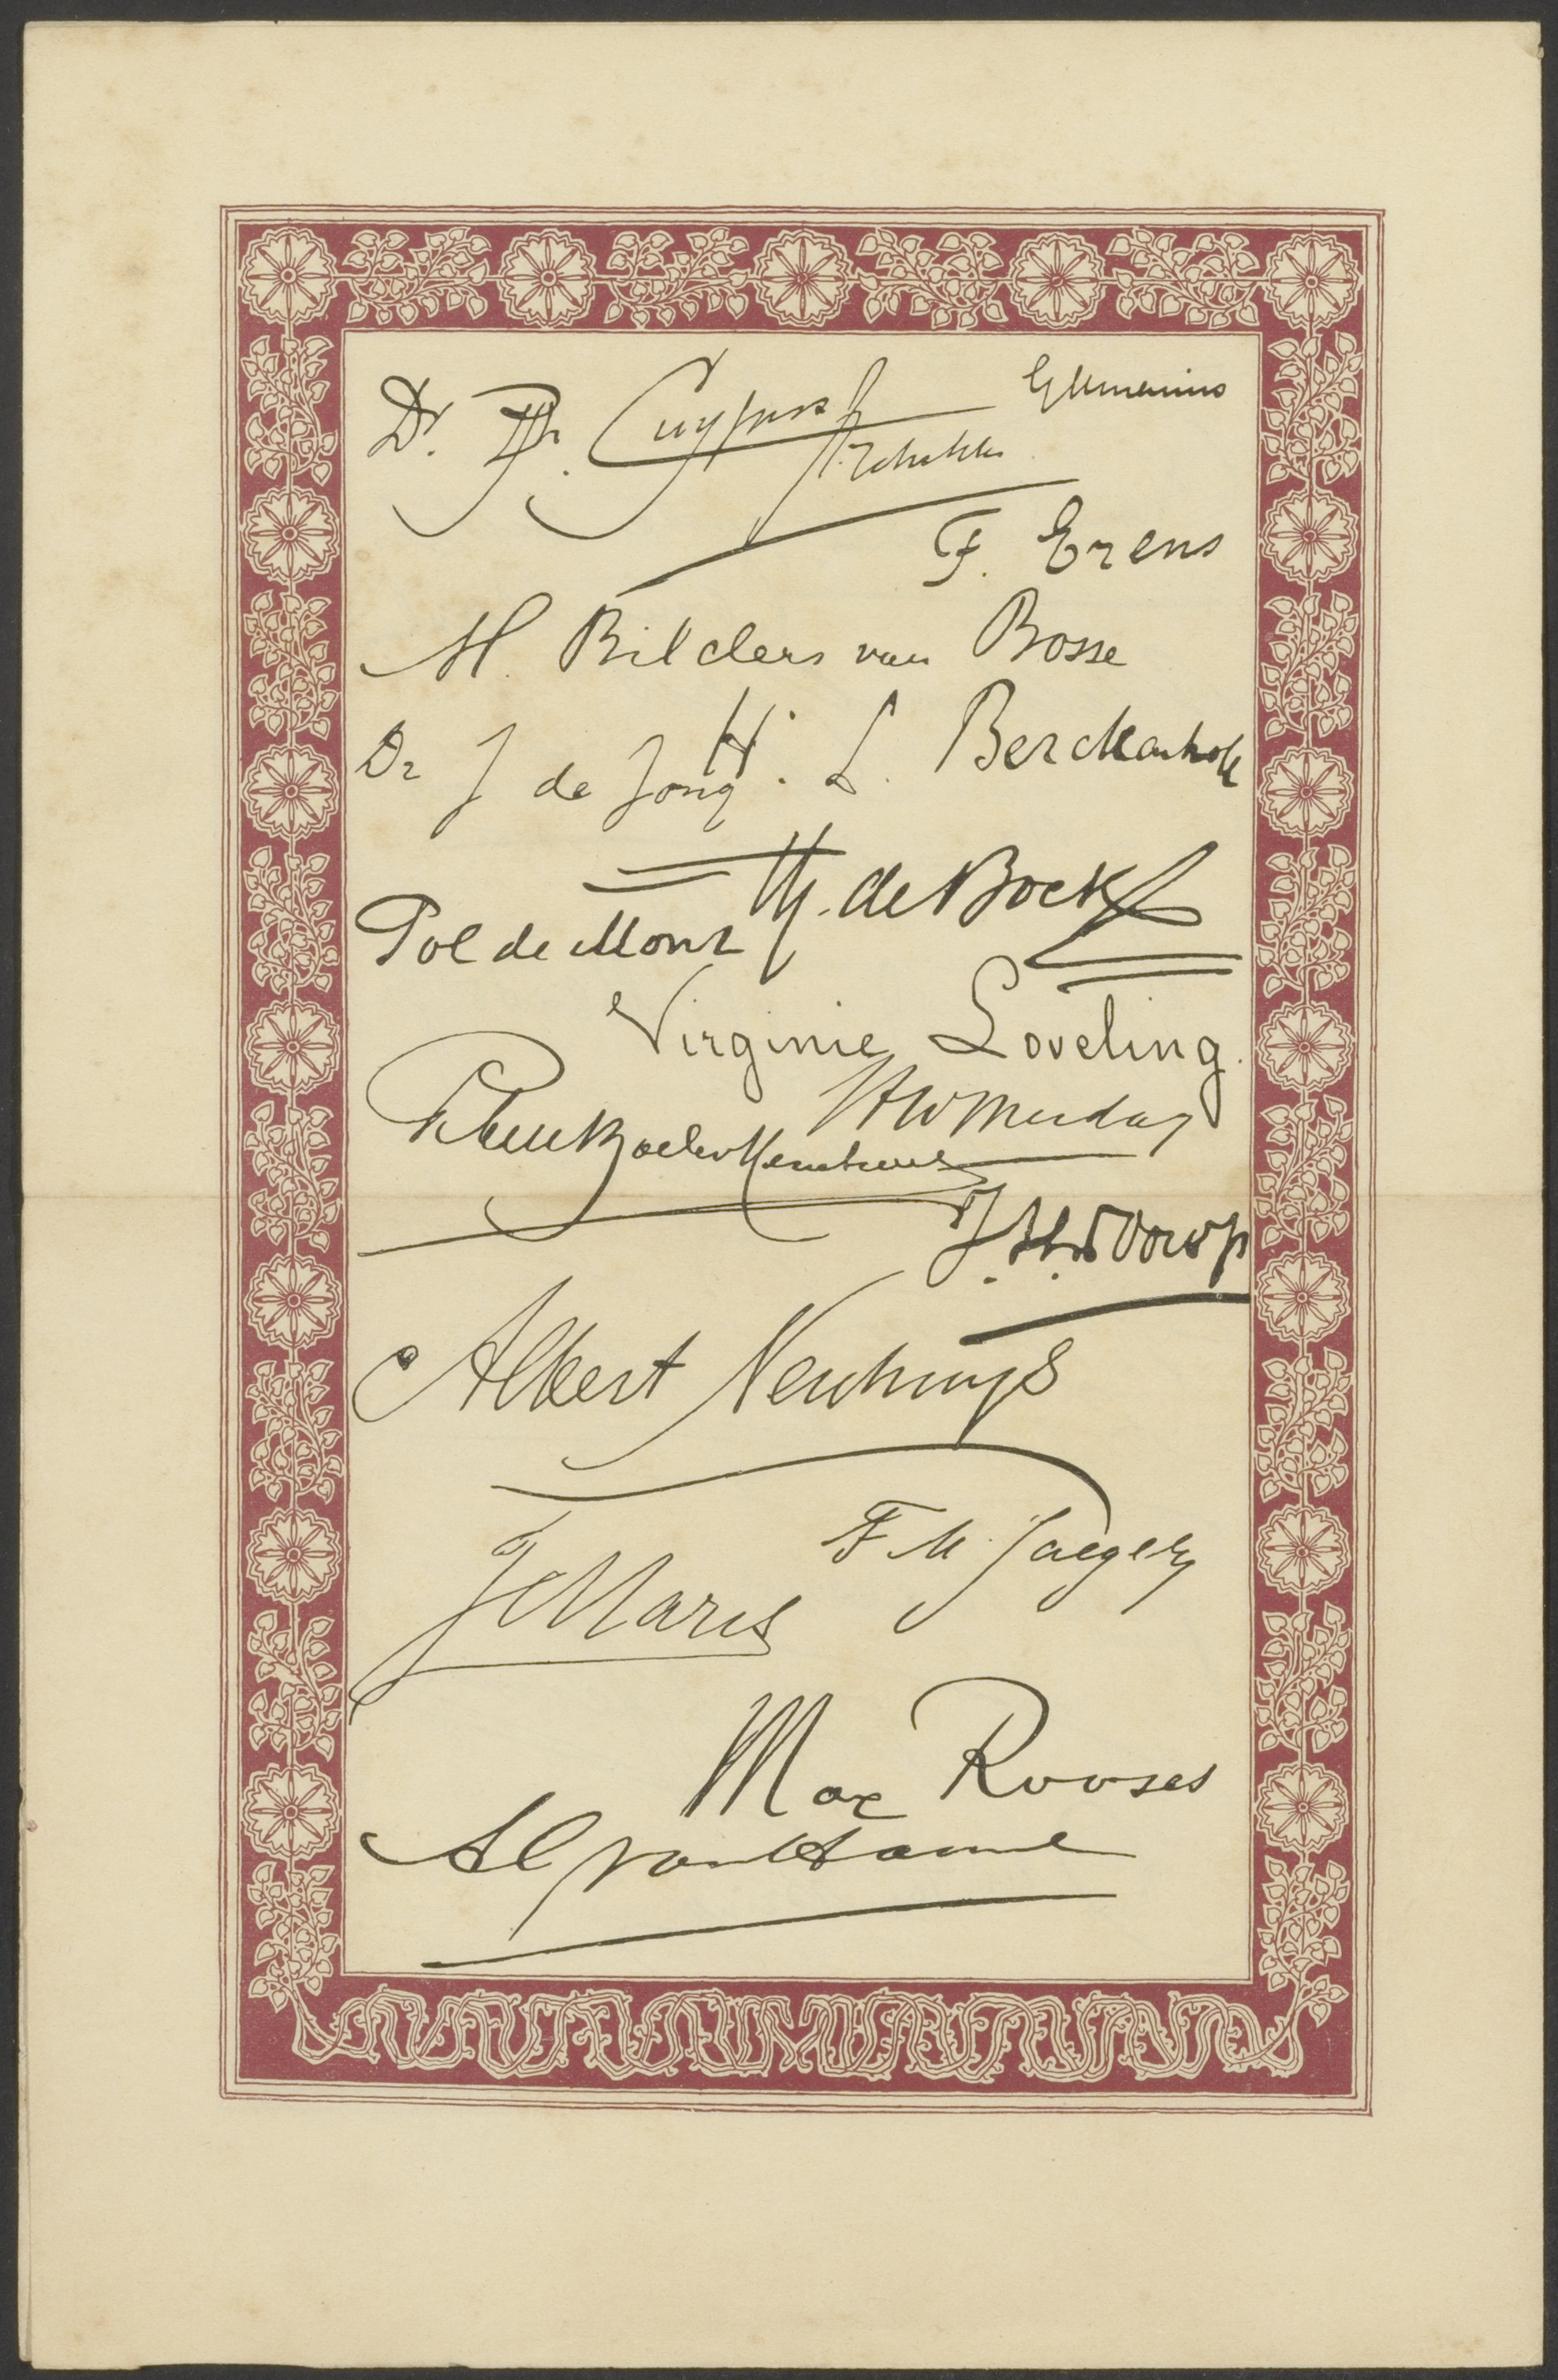 Dr. P. Cuypers
Architekt
F. Erens
M. Bilders van Bosse
Dr J de Jong
H. L. Berckenhoff
Th. de Bock
Pol de Mont
Virginie Loveling.
HW Mesdag
Albert Neuhuys
F M. Jaeger
J Maris
Max Rooses
AG van Hamel